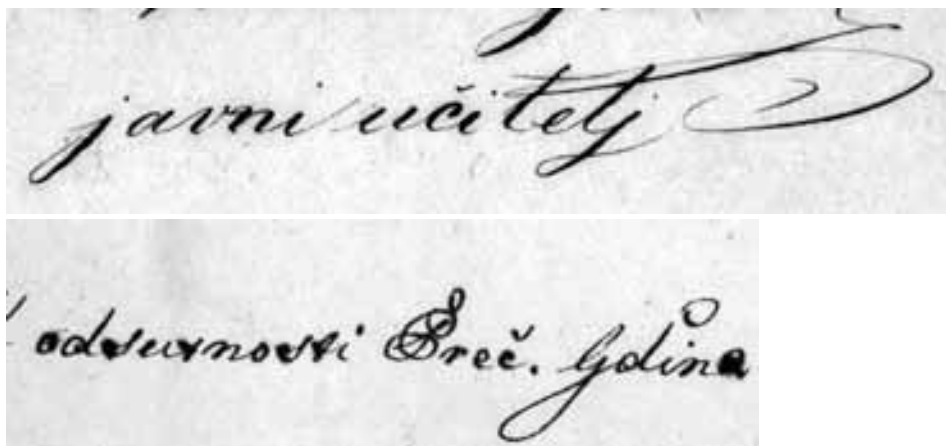 javni učitelj
odsutnosti Preč. Gdina